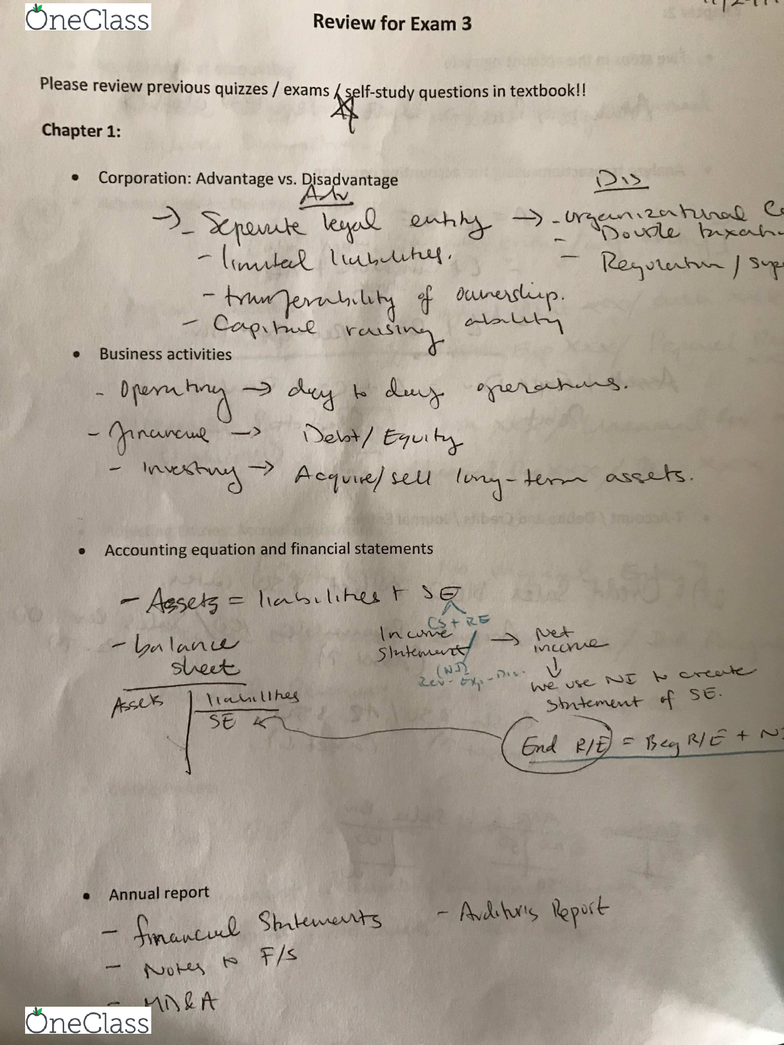 OneClass
Review for Exam 3
Please review previous quizzes / exams / self-study questions in textbook!!
Chapter 1:
• Corporation: Advantage vs. Disadvantage
Adv
Dis
→ - Seperate legal entity → - organizational
- Double
- limited liabilities.
- Regulation /
- transferability of ownership.
- Capital raising ability
• Business activities
- Operating → day to day operations.
- financial → Debt/ Equity
- Investing → Acquire/sell long-term assets.
• Accounting equation and financial statements
- Assets = liabilities + SE
CS + RE
- balance sheet
Income statement → Net income
(NI)
Rev - Exp - Div.
↓
we use NI to create
Statement of SE.
Assets | liabilities
SE
End R/E = Beg R/E +
• Annual report
- financial Statements
- Auditors Report
- Notes to F/S
- MD&A
OneClass